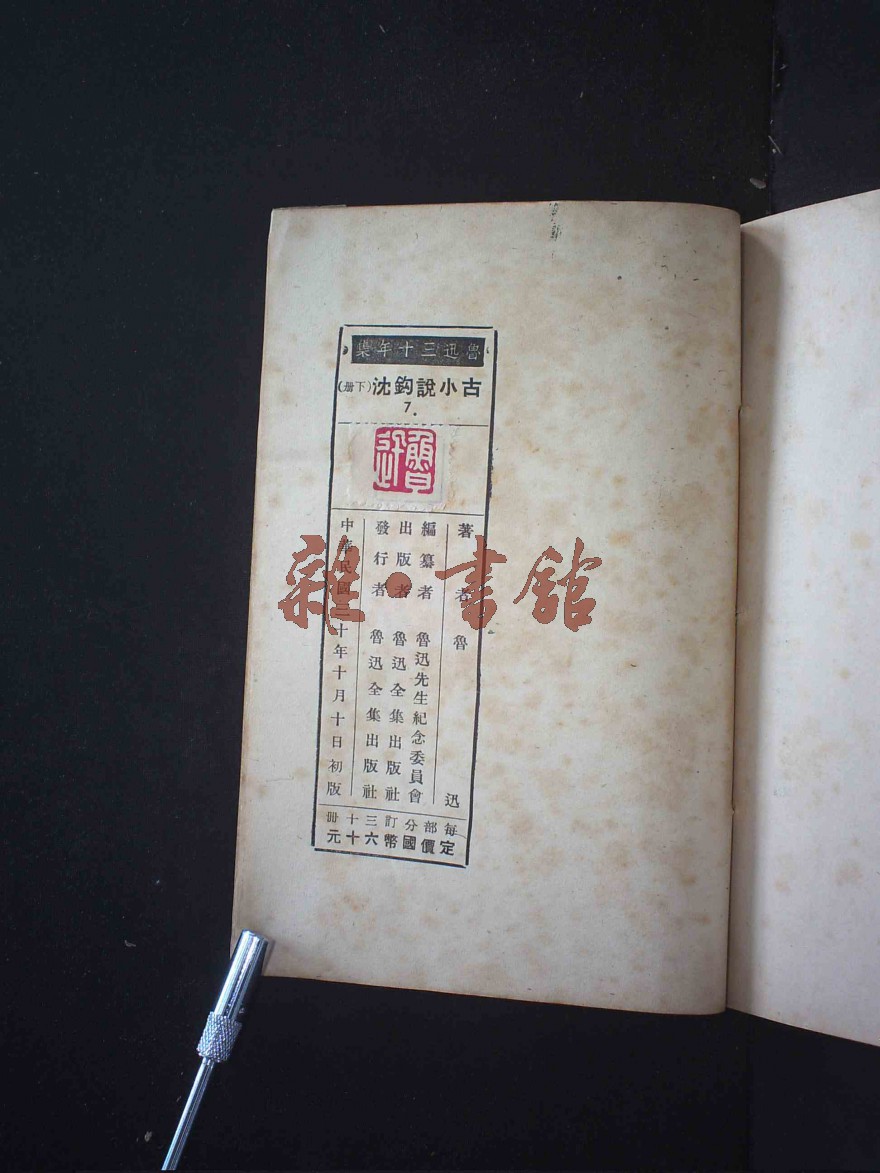 魯迅三十年集
古小說鈎沈(下册)
7.
魯迅
著者 魯迅
編纂者 魯迅先生紀念委員會
出版者 魯迅全集出版社
發行者 魯迅全集出版社
中華民國三十年十月十日初版
每部分訂三十冊
定價國幣六十元
雜·書館